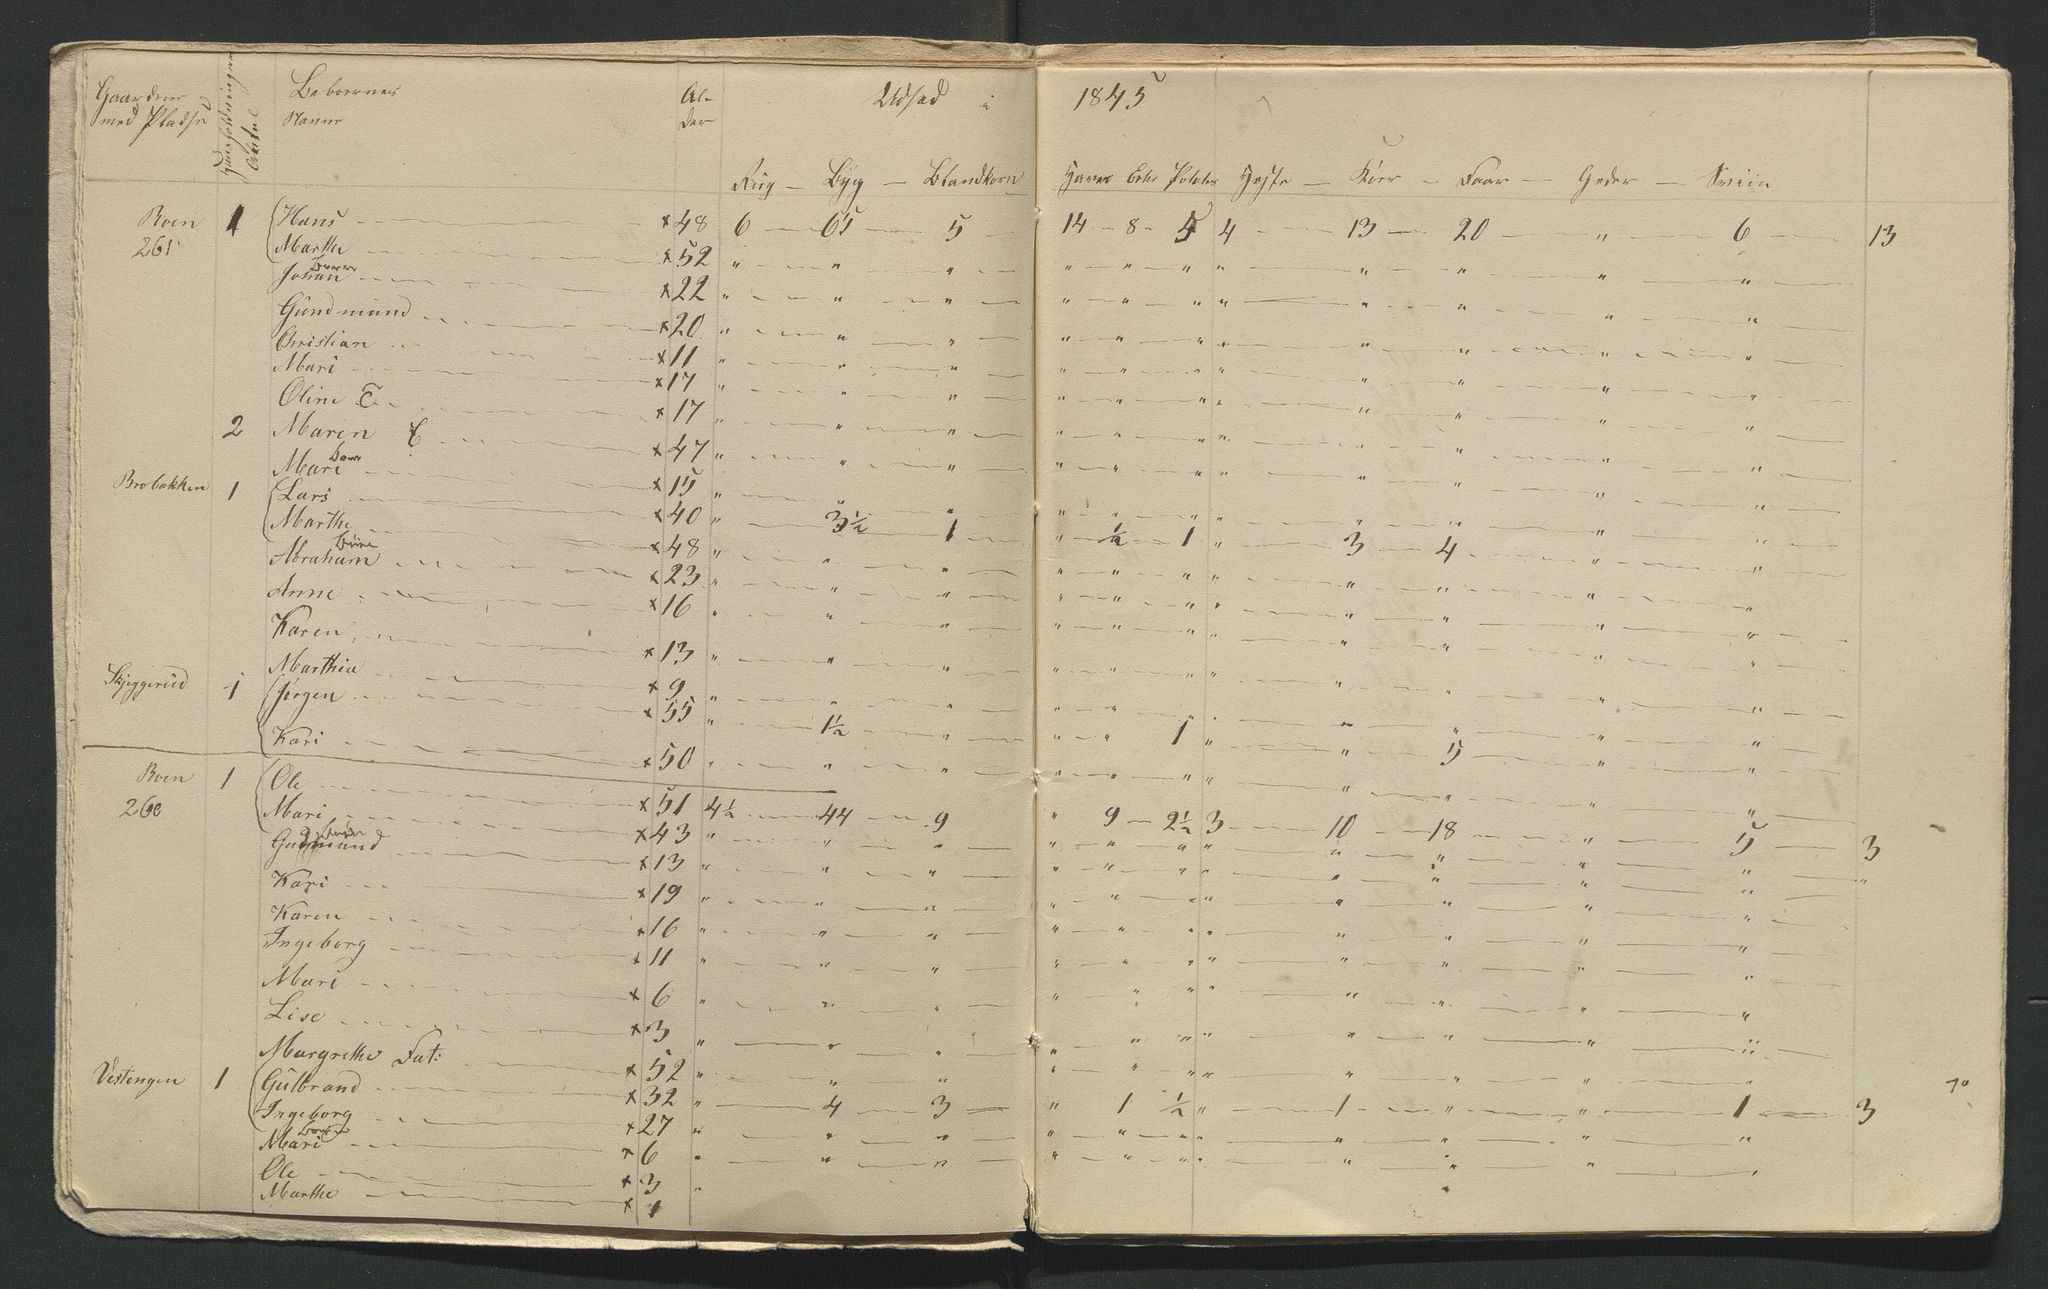 Gaardene med Pladse Huusholdningers Antal Beboernes Navne Alder Udsæd i 1845
Rug — Byg — Blandkorn Havre Erter Poteter Heste — Köer — Faar — Geder — Sviin
Boen 1 Hans × 48 6 65 5 14 8 5 4 13 20 " 6 13
261 Marthe × 52 " " " " " " " " " " "
Johan × 22 " " " " " " " " " " "
Gundmund × 20 " " " " " " " " " " "
Christian × 11 " " " " " " " " " " "
Mari × 17 " " " " " " " " " " "
Oline T × 17 " " " " " " " " " " "
2 Maren × 47 " " " " " " " " " " "
Mari × 15 " " " " " " " " " " "
Brobakken 1 Lars × 40 " 3½ 1 " ½ 1 " 3 4 " "
Marthe × 48 " " " " " " " " " " "
Abraham × 23 " " " " " " " " " " "
Anne × 16 " " " " " " " " " " "
Karen × 13 " " " " " " " " " " "
Marthia × 9 " " " " " " " " " " "
Skjeggerud 1 Jörgen × 55 " 1½ " " " 1 " " 5 " "
Kari × 50 " " " " " " " " " " "
Boen 1 Ole × 51 4½ 44 9 " 9 2½ 3 10 18 " 5 3
260 Mari × 43 " " " " " " " " " " " "
Gudmund × 13 " " " " " " " " " " "
Kari × 19 " " " " " " " " " " "
Karen × 16 " " " " " " " " " " "
Ingeborg × 11 " " " " " " " " " " "
Mari × 6 " " " " " " " " " " "
Lise × 3 " " " " " " " " " " "
Margrethe Fat: × 52 " " " " " " " " " " "
Vestengen 1 Gulbrand × 32 " 4 3 " 1 ½ " 1 " " 1 3
Ingeborg × 27 " " " " " " " " " " "
Mari × 6 " " " " " " " " " " "
Ole × 3 "
Marthe × 1